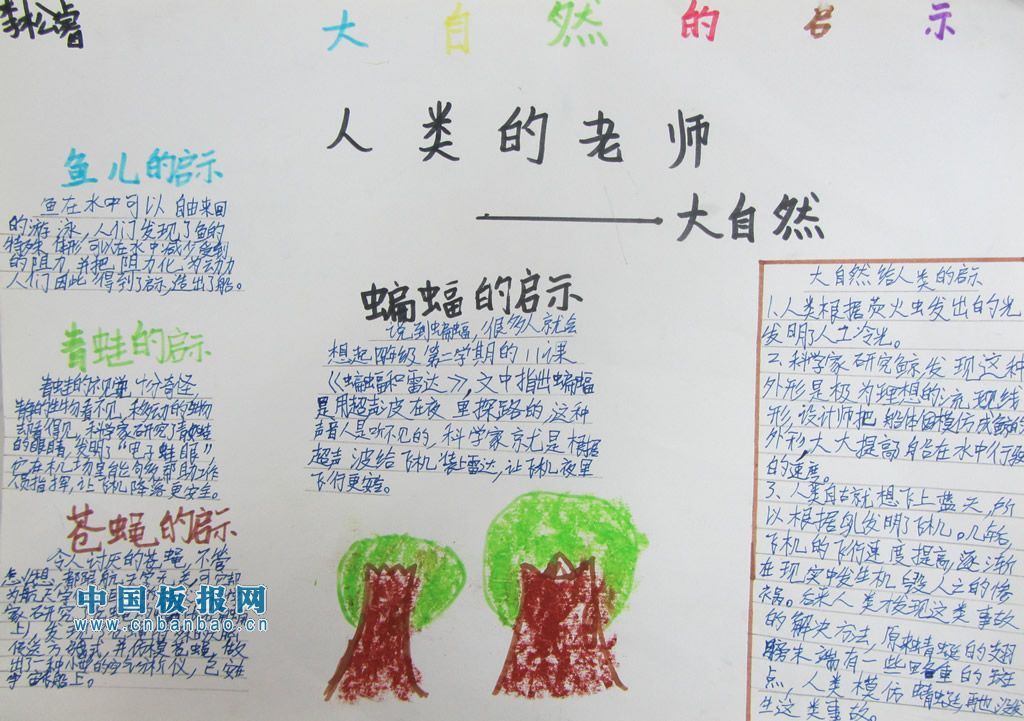 李松睿
大自然的启示
人类的老师
——大自然
鱼儿的启示
鱼在水中可以自由来回
的游泳,人们发现了鱼的
特殊体形可以在水中减少受到
的阻力,并把阻力化为动力
人们因此得到了启示,造出了船。
青蛙的启示
青蛙的 十分奇怪,
静的生物看不见,移动的生物
却看得见,科学家研究了青蛙
的眼睛,发明了“电子蛙眼”
它在机场里能够帮助工作
人员指挥,让飞机降落更安全。
苍蝇的启示
令人讨厌的苍蝇,不管
怎么想,都跟航
为航天
家研究
上,发
仿模苍蝇,做
出了一种小型的空气分析仪,已安在
宇宙 船上。
蝙蝠的启示
说到蝙蝠,很多人就会
想起 年级第二学期的11课
《蝙蝠和雷达》,文中指出蝙蝠
是用超声波在夜里探路的,这种
声音人是听不见的,科学家就是根据
超声波给飞机装上雷达,让飞机夜里
飞行更安全。
大自然给人类的启示
1、人类根据萤火虫发出的光
发明了人工冷光。
2、科学家研究鲸发现这种
外形是极为理想的流 线
形,设计师把船体 模仿成鲸的
外形,大大提高 在水中行驶
的速度。
3、人类自古就想飞上蓝天,所
以根据鸟发明飞机。几轮
飞机的飞行速度提高,逐渐
在现实中发生机毁人亡的惨
祸。后来人类才发现这类事故
的解决方法,原来青蜓的翅
膀末端有一些 重的斑
点,人类模仿晴蜓再也没发
生这类事故。
中国板报网
www.cnbanbao.cn